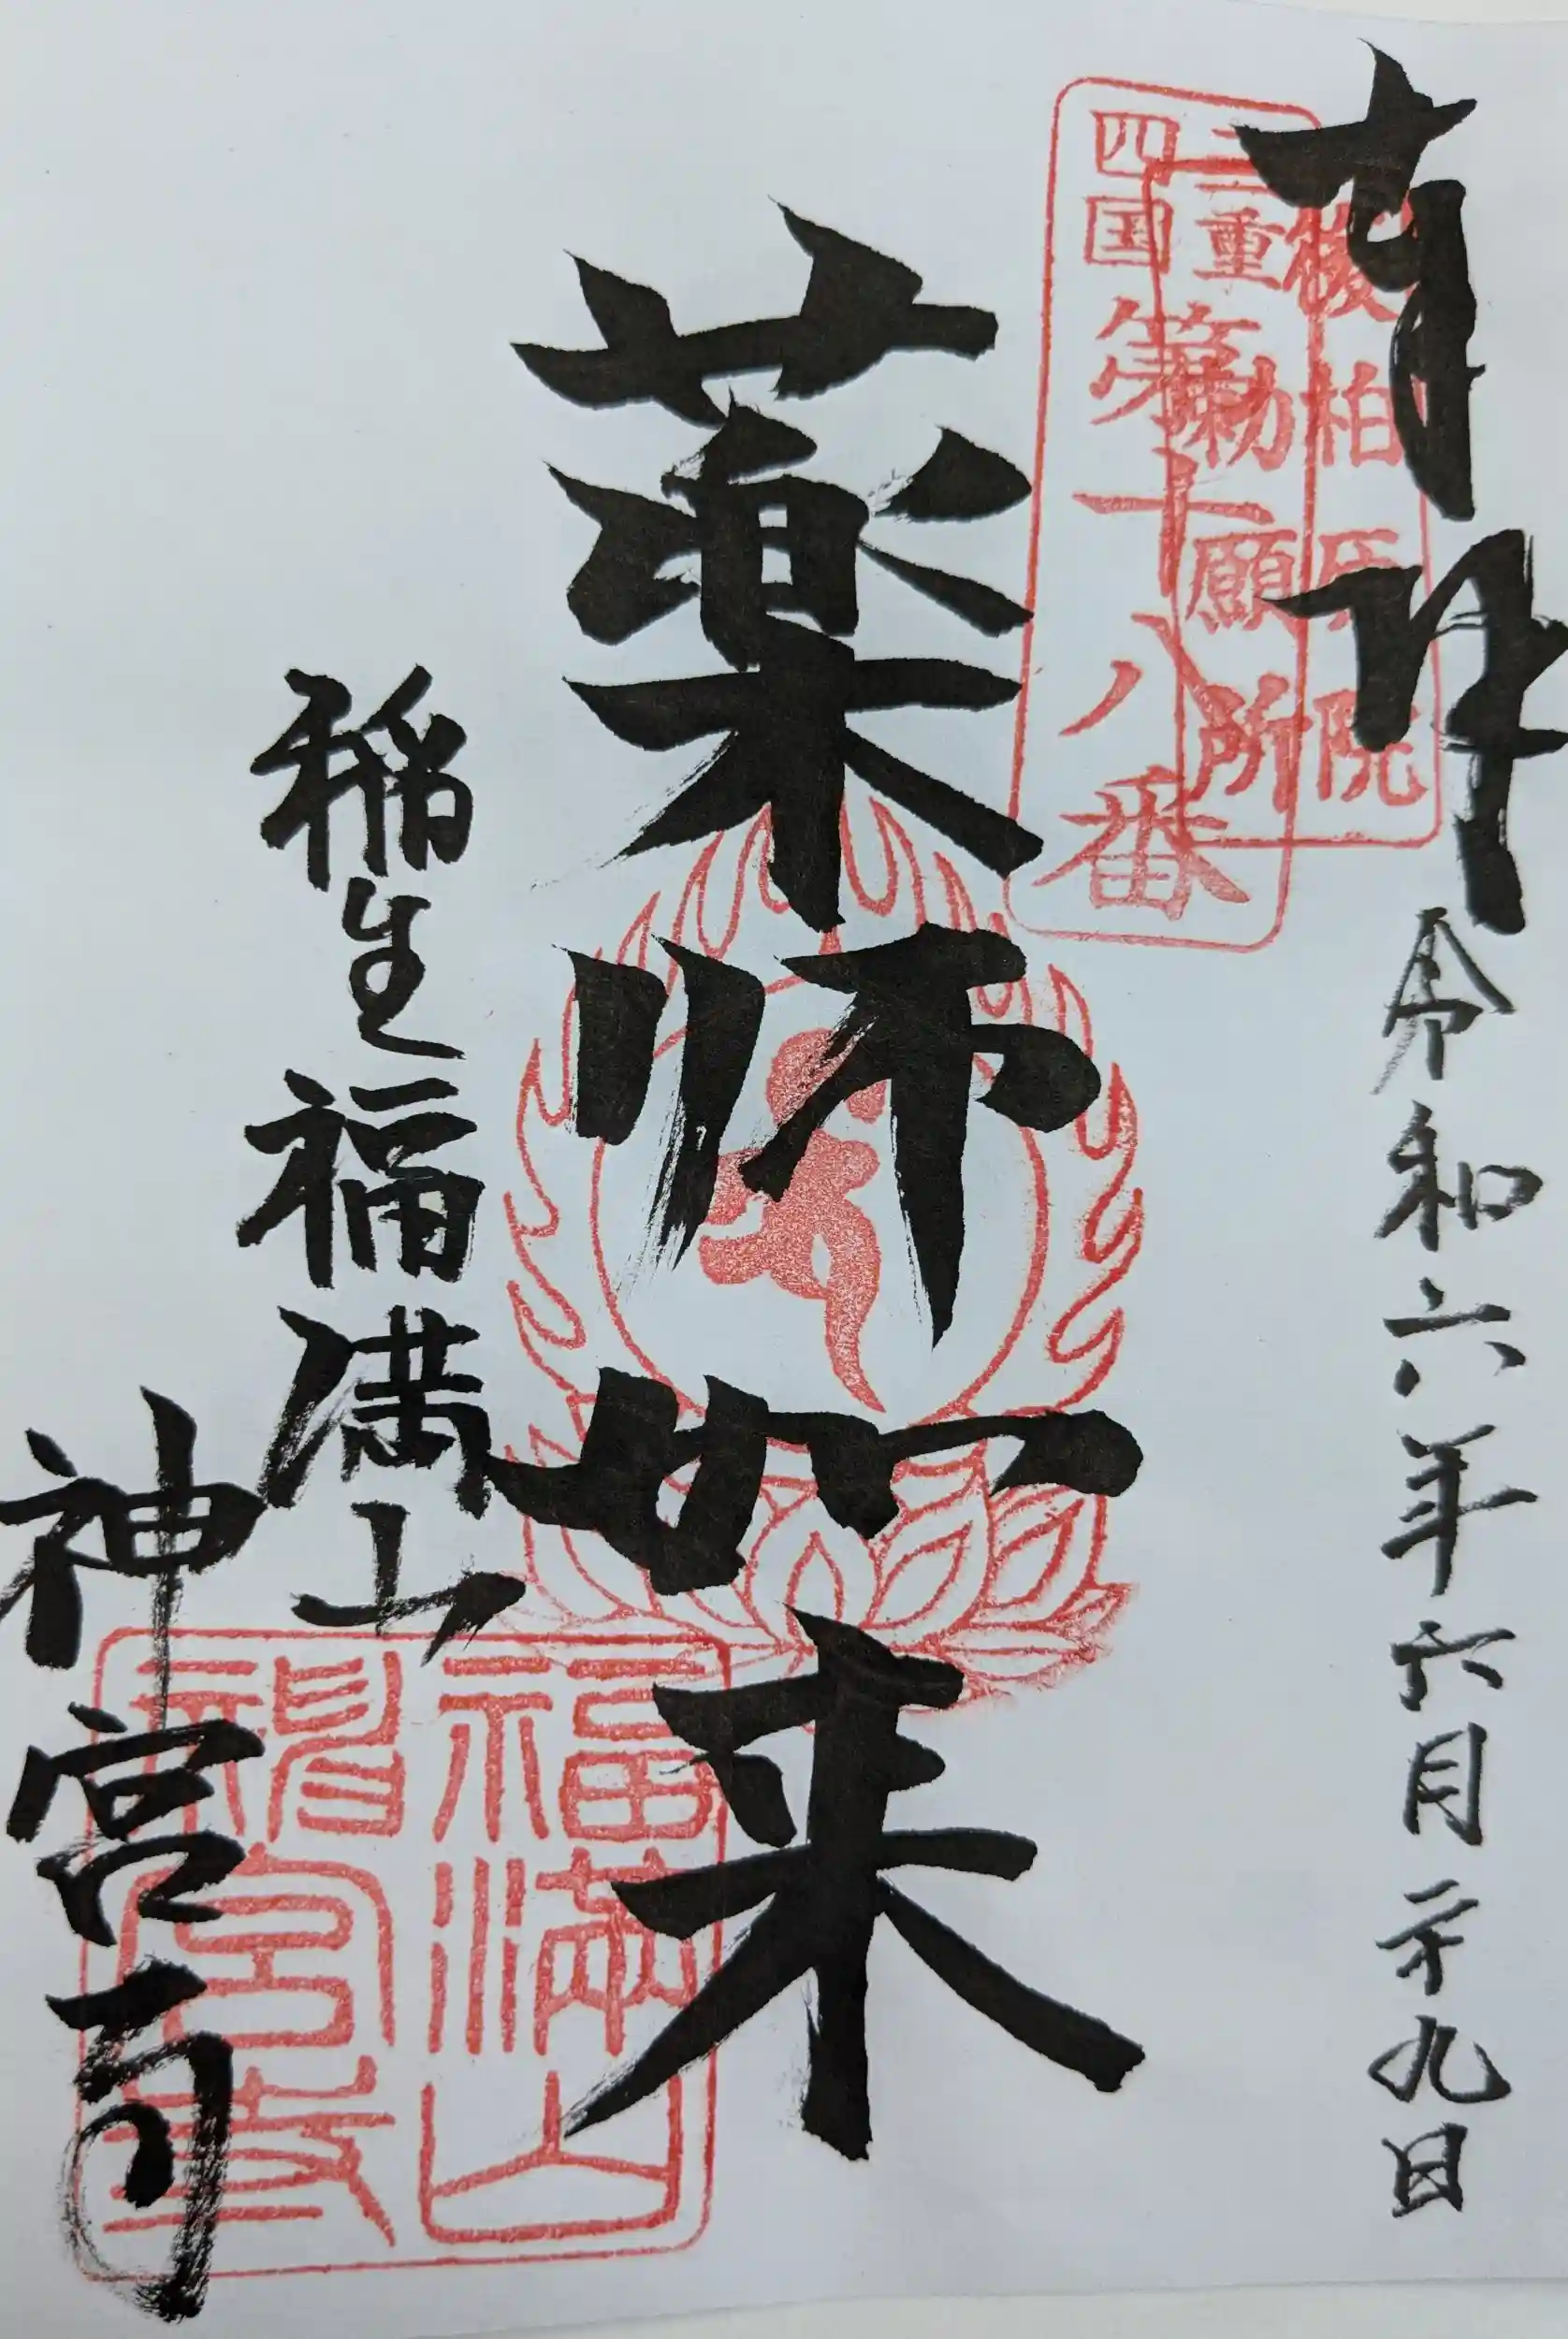 奉拝 令和六年六月二十九日
後柏原院
勅願所
三重
四国
第十八番
薬師如来
稲生福満山
神宮寺
福満山
神宮寺